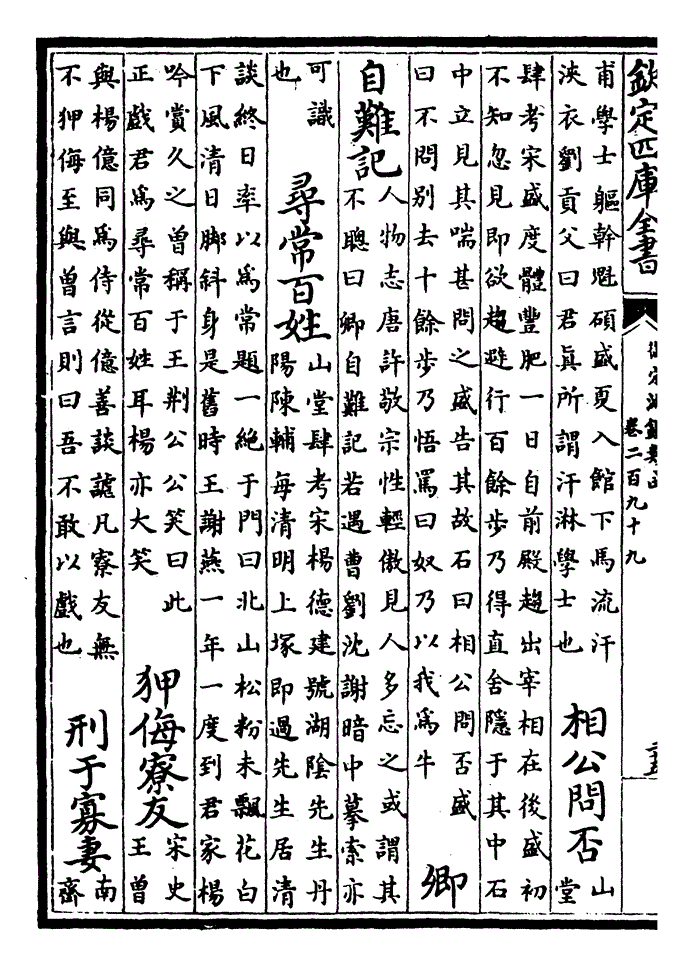 欽定四庫全書
御定淵鑑類函
卷二百九十九
甫學士軀幹魁碩盛夏入館下馬流汗
浹衣劉貢父曰君真所謂汗淋學士也
相公問否
山
堂
肆考宋盛度體豐肥一日自前殿趨出宰相在後盛初
不知忽見即欲趨避行百餘步乃得直舍隱于其中石
中立見其喘甚問之盛告其故石曰相公問否盛
曰不問别去十餘步乃悟罵曰奴乃以我為牛
卿
自難記
人物志唐許敬宗性輕傲見人多忘之或謂其
不聰曰卿自難記若遇曹劉沈謝暗中摹索亦
可識
也
尋常百姓
山堂肆考宋楊德建號湖陰先生丹
陽陳輔每清明上塚即過先生居清
談終日率以為常題一絶于門曰北山松粉未飄花白
下風清日脚斜身是舊時王謝燕一年一度到君家楊
吟賞久之曾稱于王荆公公笑曰此
正戲君為尋常百姓耳楊亦大笑
狎侮寮友
宋史
王曾
與楊億同為侍從億善談謔凡寮友無
不狎侮至與曾言則曰吾不敢以戲也
刑于寡妻
南
齊